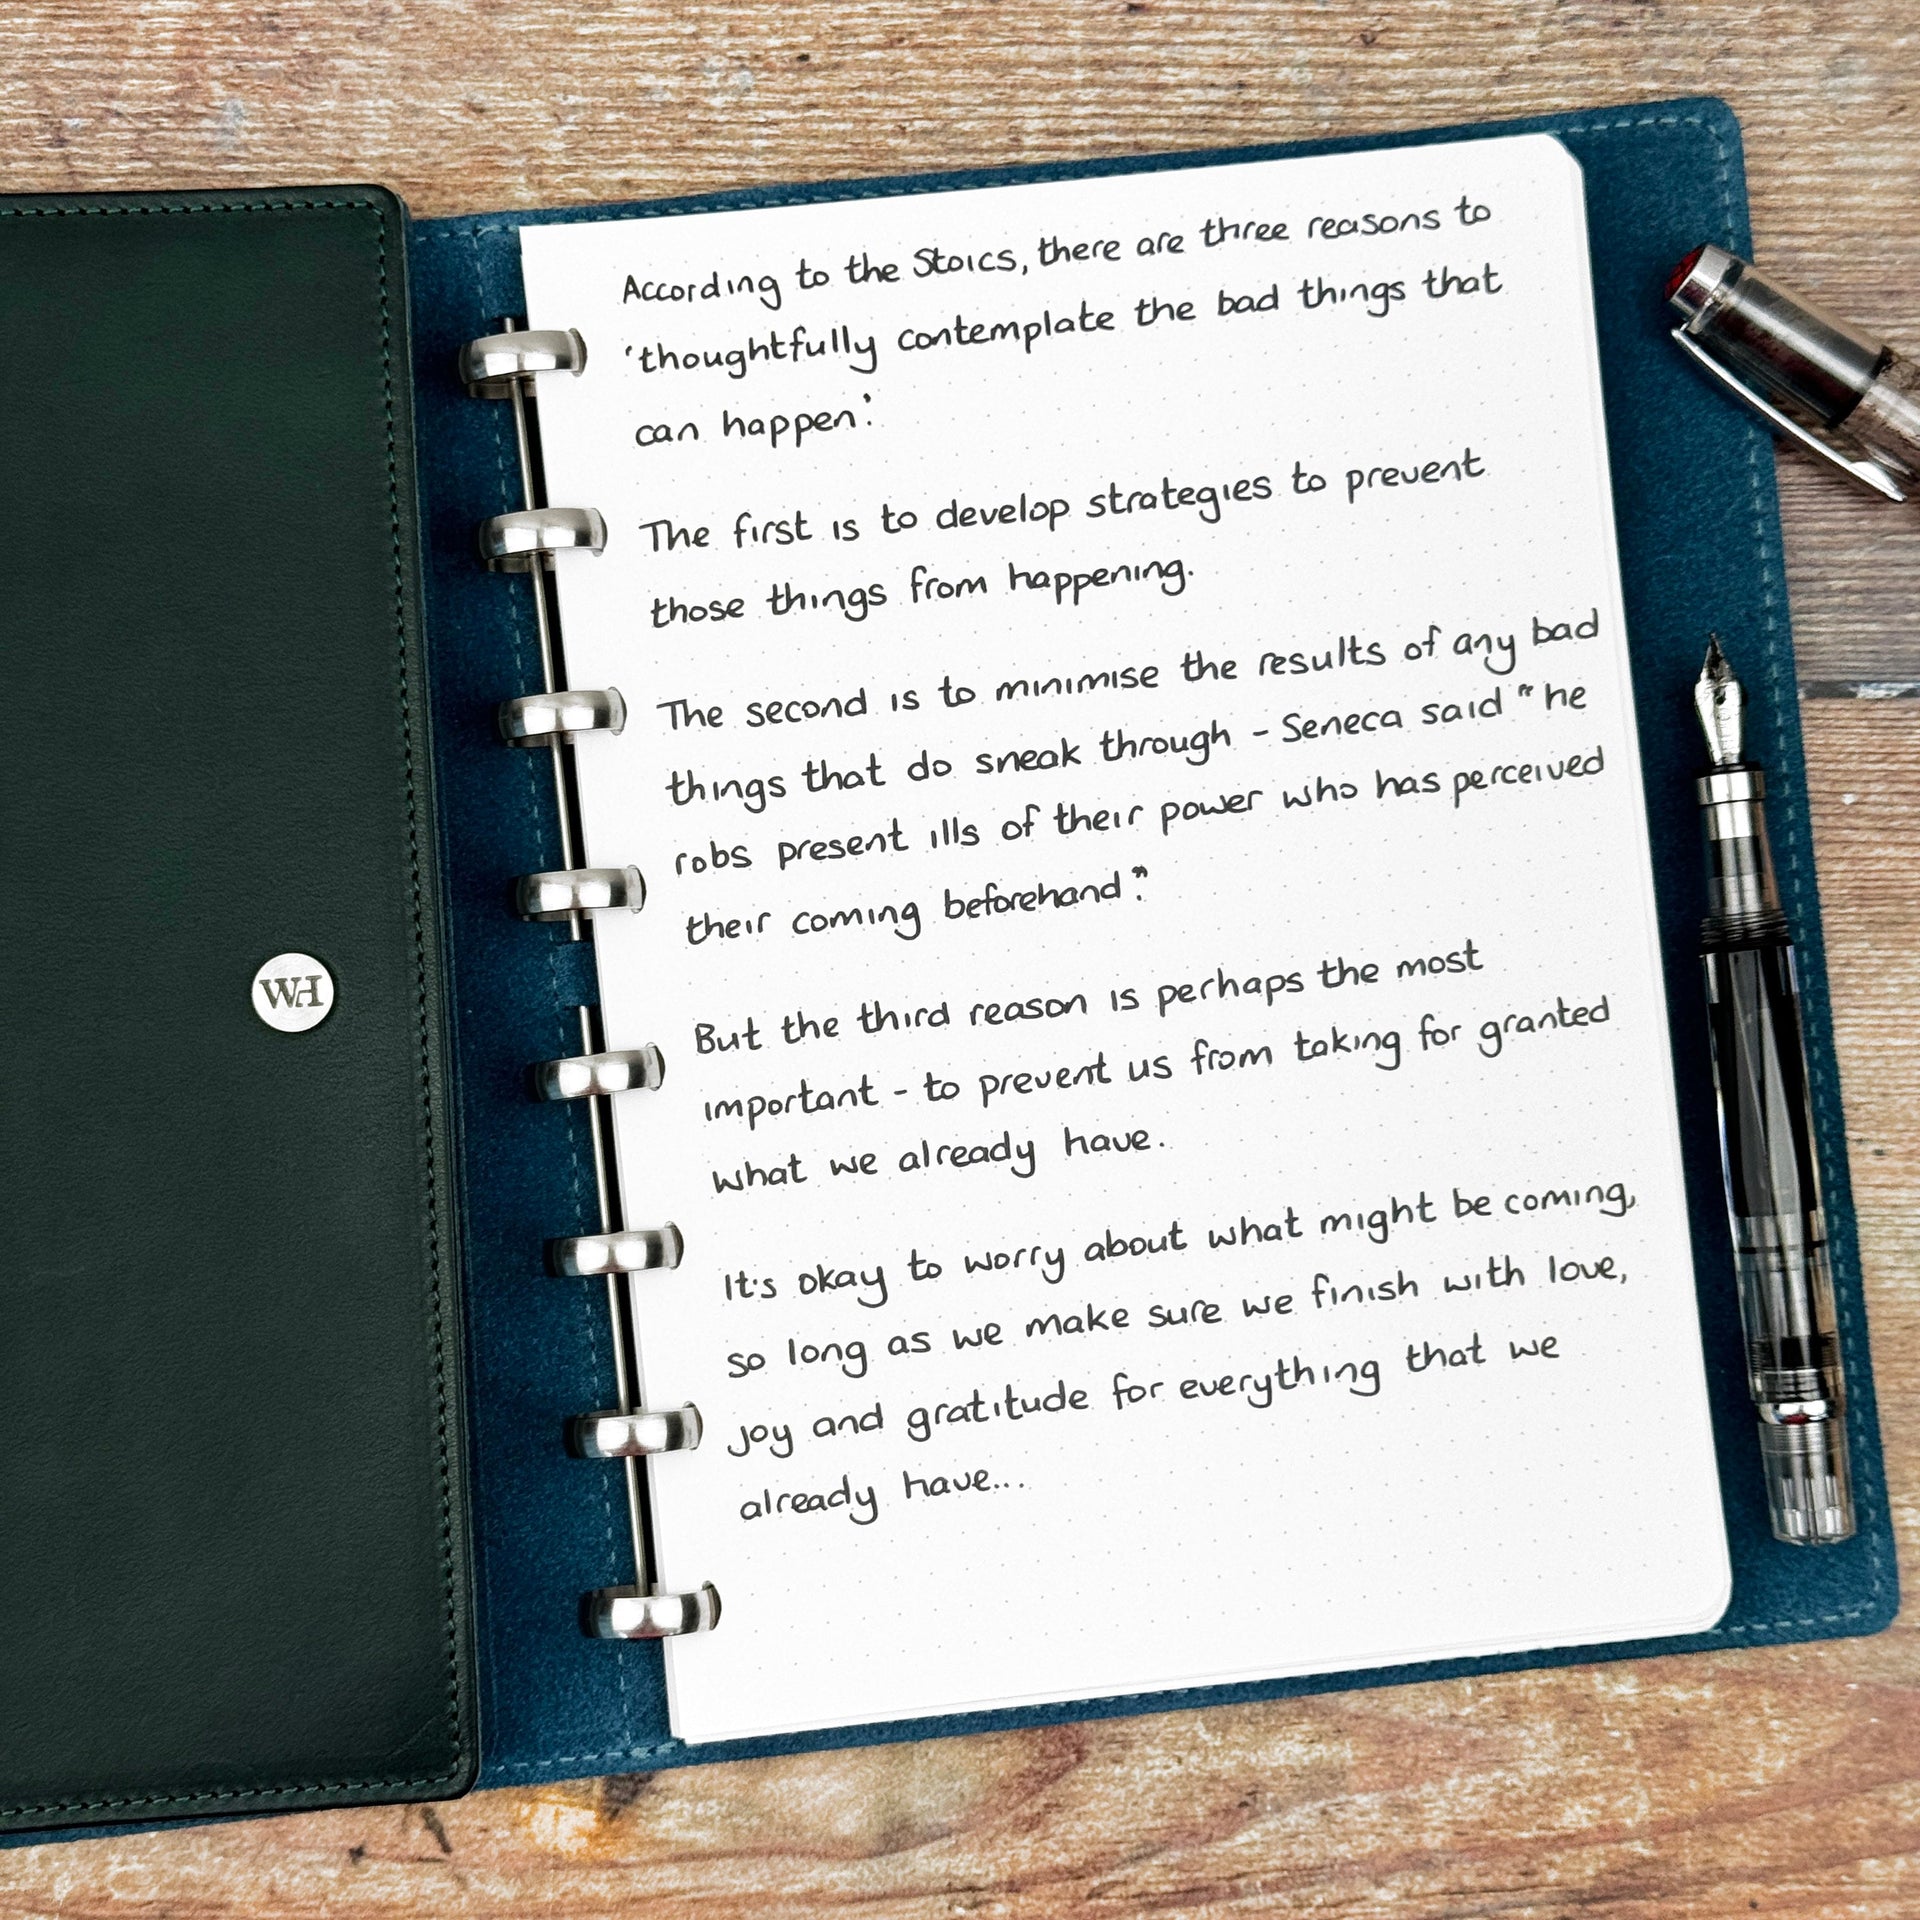 WH
According to the Stoics, there are three reasons to
'thoughtfully contemplate the bad things that
can happen.'
The first is to develop strategies to prevent
those things from happening.
The second is to minimise the results of any bad
things that do sneak through - Seneca said "he
robs present ills of their power who has perceived
their coming beforehand."
But the third reason is perhaps the most
important - to prevent us from taking for granted
what we already have.
It's okay to worry about what might be coming,
so long as we make sure we finish with love,
joy and gratitude for everything that we
already have...